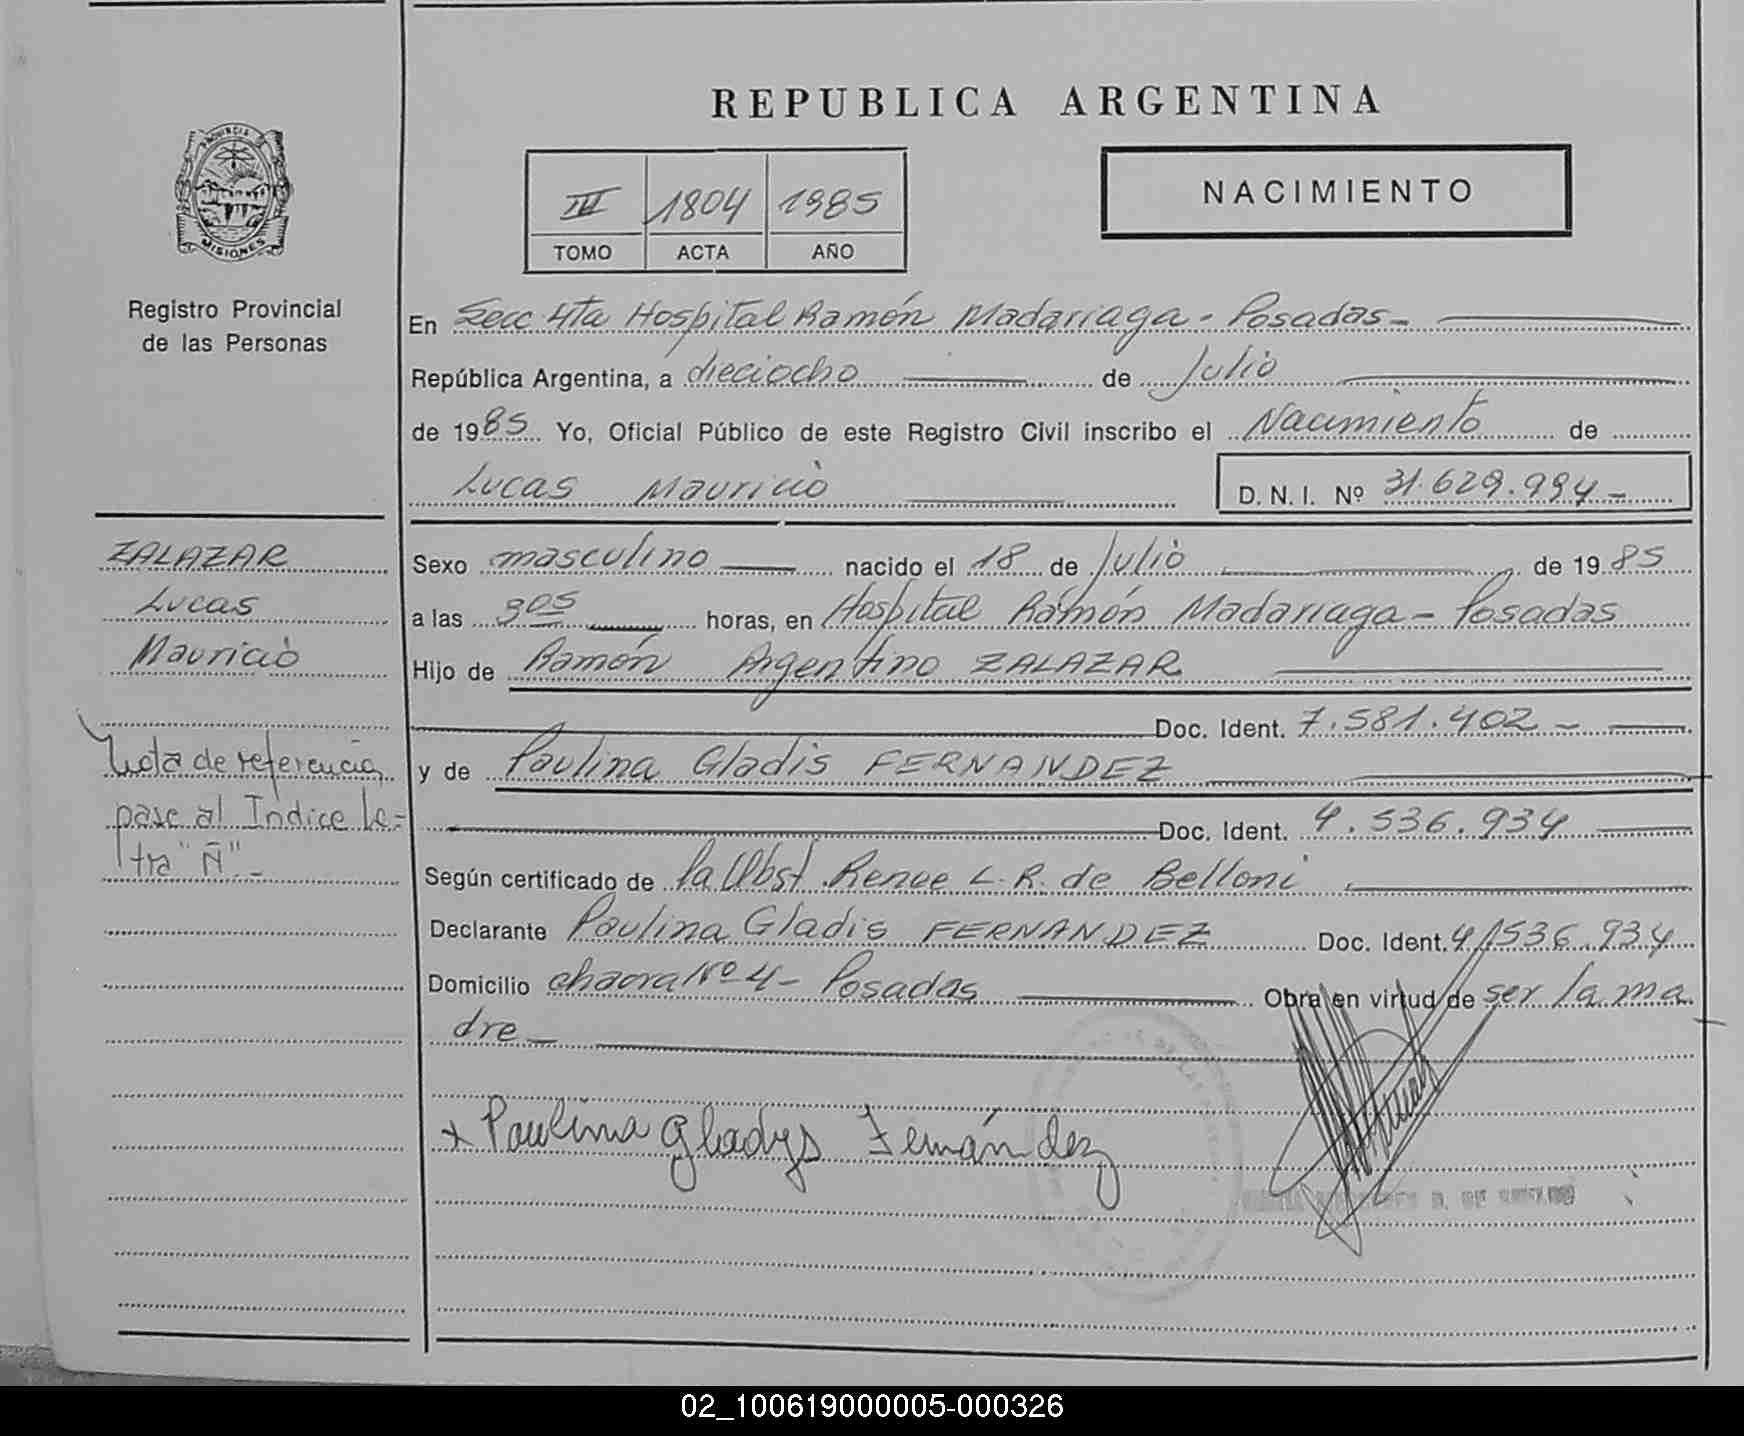 REPUBLICA ARGENTINA
PROVINCIA DE
MISIONES
Registro Provincial
de las Personas
III 1804 1985
TOMO ACTA AÑO
NACIMIENTO
En Secc 4ta Hospital Ramón Madariaga - Posadas -
República Argentina, a dieciocho de Julio
de 1985 Yo, Oficial Público de este Registro Civil inscribo el Nacimiento de
Lucas Mauricio D. N. I. Nº 31.629.994 -
ZALAZAR
Lucas
Mauricio
Nota de referencia,
pase al Indice Le-
tra "Ñ".-
Sexo masculino nacido el 18 de Julio de 1985
a las 905 horas, en Hospital Ramón Madariaga - Posadas
Hijo de Ramón Argentino ZALAZAR
Doc. Ident. 7.581.402 -
y de Paulina Gladis FERNANDEZ
Doc. Ident. 4.536.934
Según certificado de la Obst. Renee L. R. de Belloni
Declarante Paulina Gladis FERNANDEZ Doc. Ident. 4.536.934
Domicilio chacra Nº 4 - Posadas Obra en virtud de ser la ma
dre -
x Paulina Gladys Fernández
02_100619000005-000326